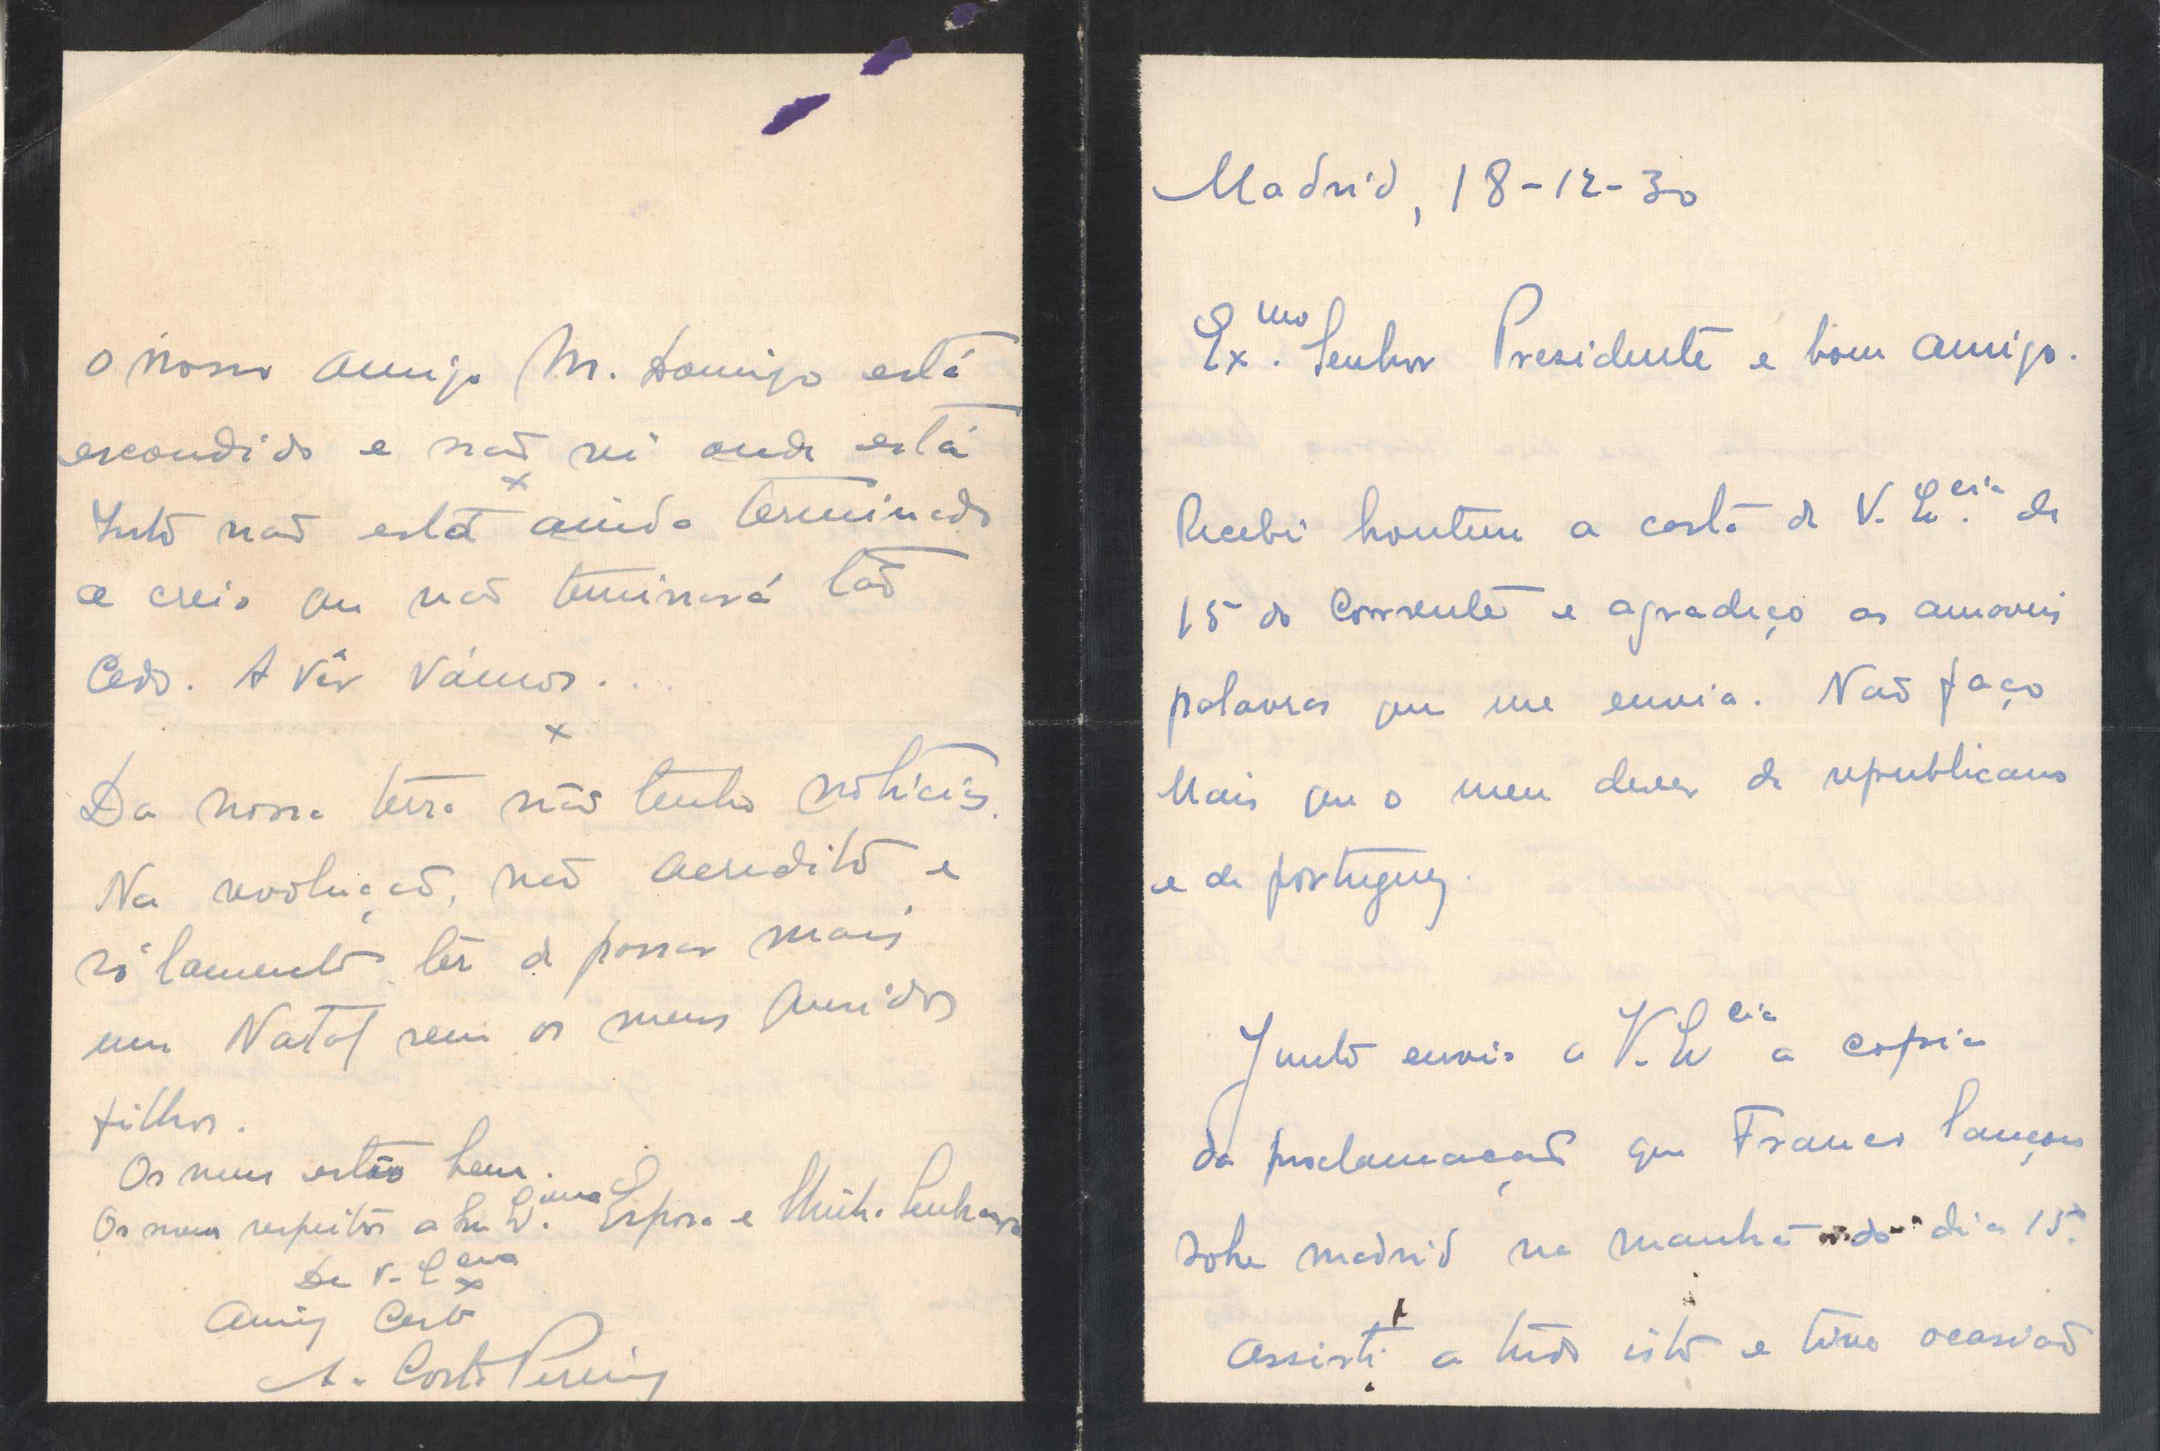 Madrid, 18-12-30
Ex.mo Senhor Presidente e bom amigo.
Recebi hontem a carta de V. Ex.cia de
15 do corrente e agradeço as amaveis
palavras que me envia. Não faço
mais que o meu dever de republicano
e de portuguez.
Junto envio a V. Ex cia a copia
da proclamação que Franco lançou
sobre Madrid na manhã do dia 15.
Assisti a tudo isto e tive ocasião
O nosso amigo M. Domingo está
escondido e não sei onde está
x
Isto não está ainda terminado
e creio que não terminará tão
cedo. A vêr vámos...
x
Da nossa terra não tenho noticias.
Na revolução, não acredito e
só lamento têr de passar mais
um Natal sem os meus queridos
filhos.
Os meus estão bem.
Os meus respeitos a Sua Ex.ma Esposa e Minha Senhora
De V. Ex cia
x
Amigo Certo
A. Costa Pereira